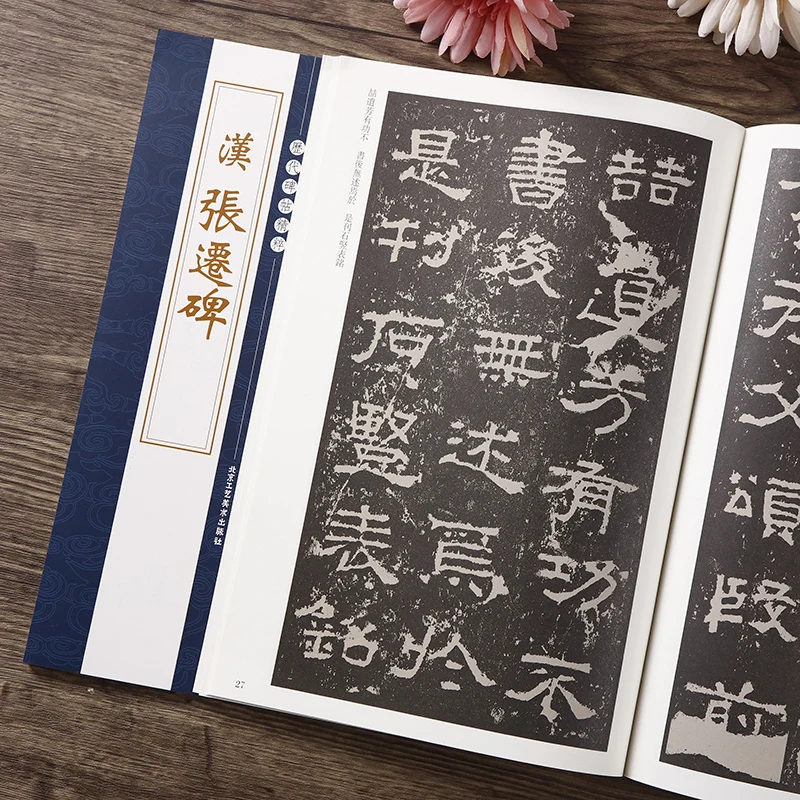 漢 張遷碑
歷代碑帖精粹
北京工艺美术出版社
喆遺芳有功不 書後無述焉於 是刊石竪表銘
考父頌殷前
喆遺芳有功不
書後無述焉於
是刊石豎表銘
27